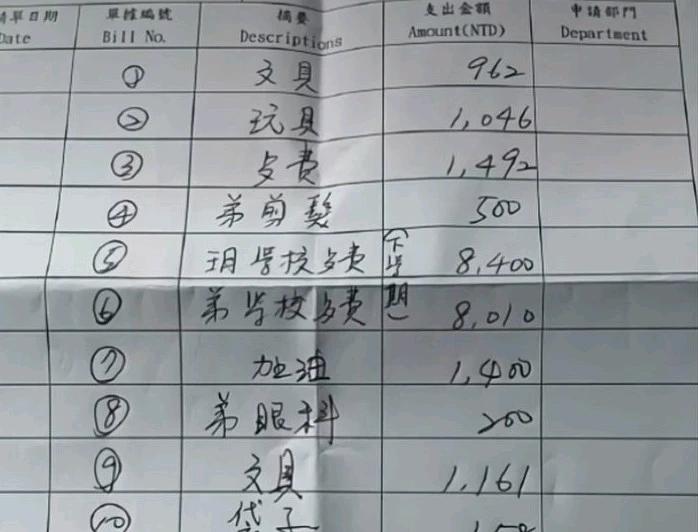 請單日期 單據編號 摘要 支出金額 申請部門
Date Bill No. Descriptions Amount(NTD) Department
① 文具 962
② 玩具 1,046
③ 支費 1,492
④ 弟剪髮 500
⑤ 玥学校支費(下学期) 8,400
⑥ 弟学校支費 8,010
⑦ 加油 1,400
⑧ 弟眼科 200
⑨ 文具 1,161
⑩ 袋子